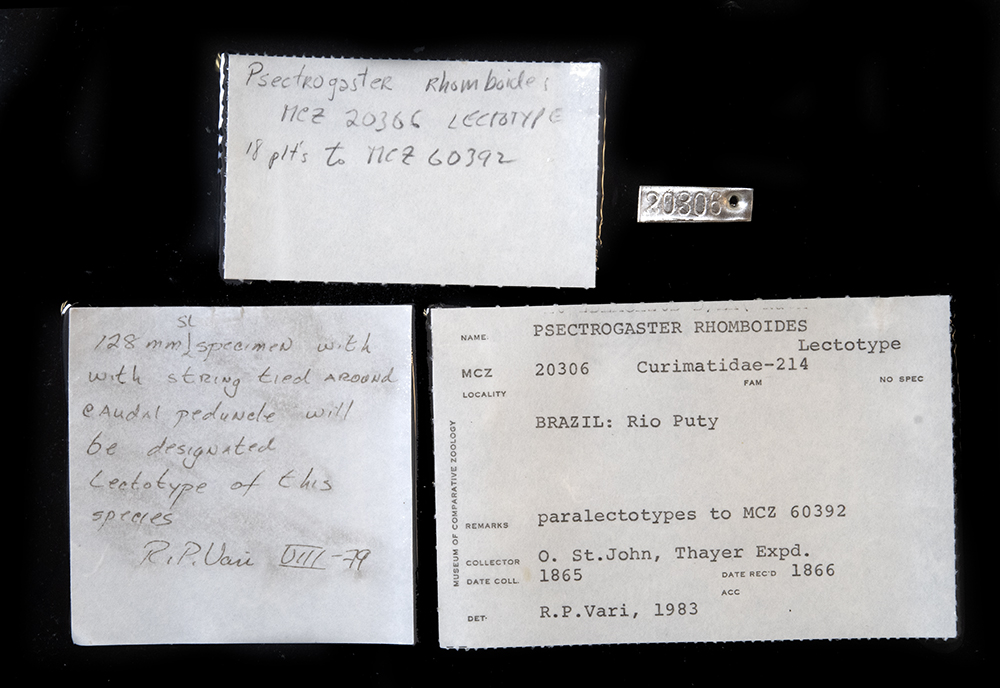 Psectrogaster Rhomboides
MCZ 20306 LECTOTYPE
18 plt's to MCZ 60392
20306
SL
128 mm specimen with
with string tied AROUND
caudal peduncle will
be designated
Lectotype of this
species
R.P.Vari VIII-79
NAME: PSECTROGASTER RHOMBOIDES
Lectotype
MCZ 20306 Curimatidae-214
FAM NO SPEC
LOCALITY
BRAZIL: Rio Puty
MUSEUM OF COMPARATIVE ZOOLOGY
REMARKS paralectotypes to MCZ 60392
COLLECTOR O. St.John, Thayer Expd.
DATE COLL. 1865 DATE REC'D 1866
ACC
DET. R.P.Vari, 1983